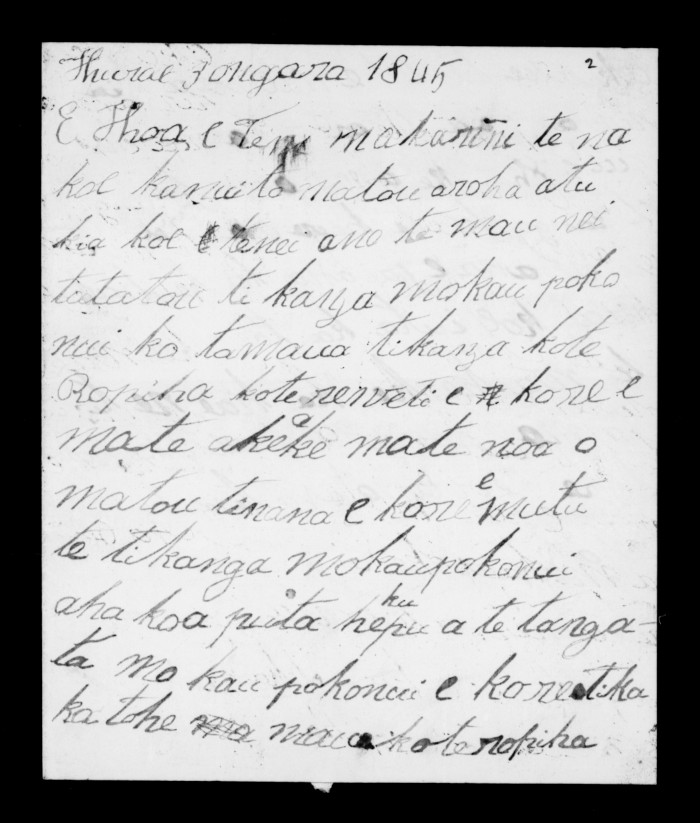 2
Hurae 3 ongara 1845
E Hhoa e Tena makarini te na
koe kanui to matou aroha atu
kia koe e tenei ano te mau nei
tutatou ti kanga mokau poko
nui ko tamaua tikanga kote
Ropiha kote reweti e kore e
mate akeake mate noa o
matou tinana e kore e mutu
te tikanga mokaupokonui
aha koa puta he ku pu a te tanga-
ta mo kau pokonui e kore tika
ka tohe maua ko te ropiha